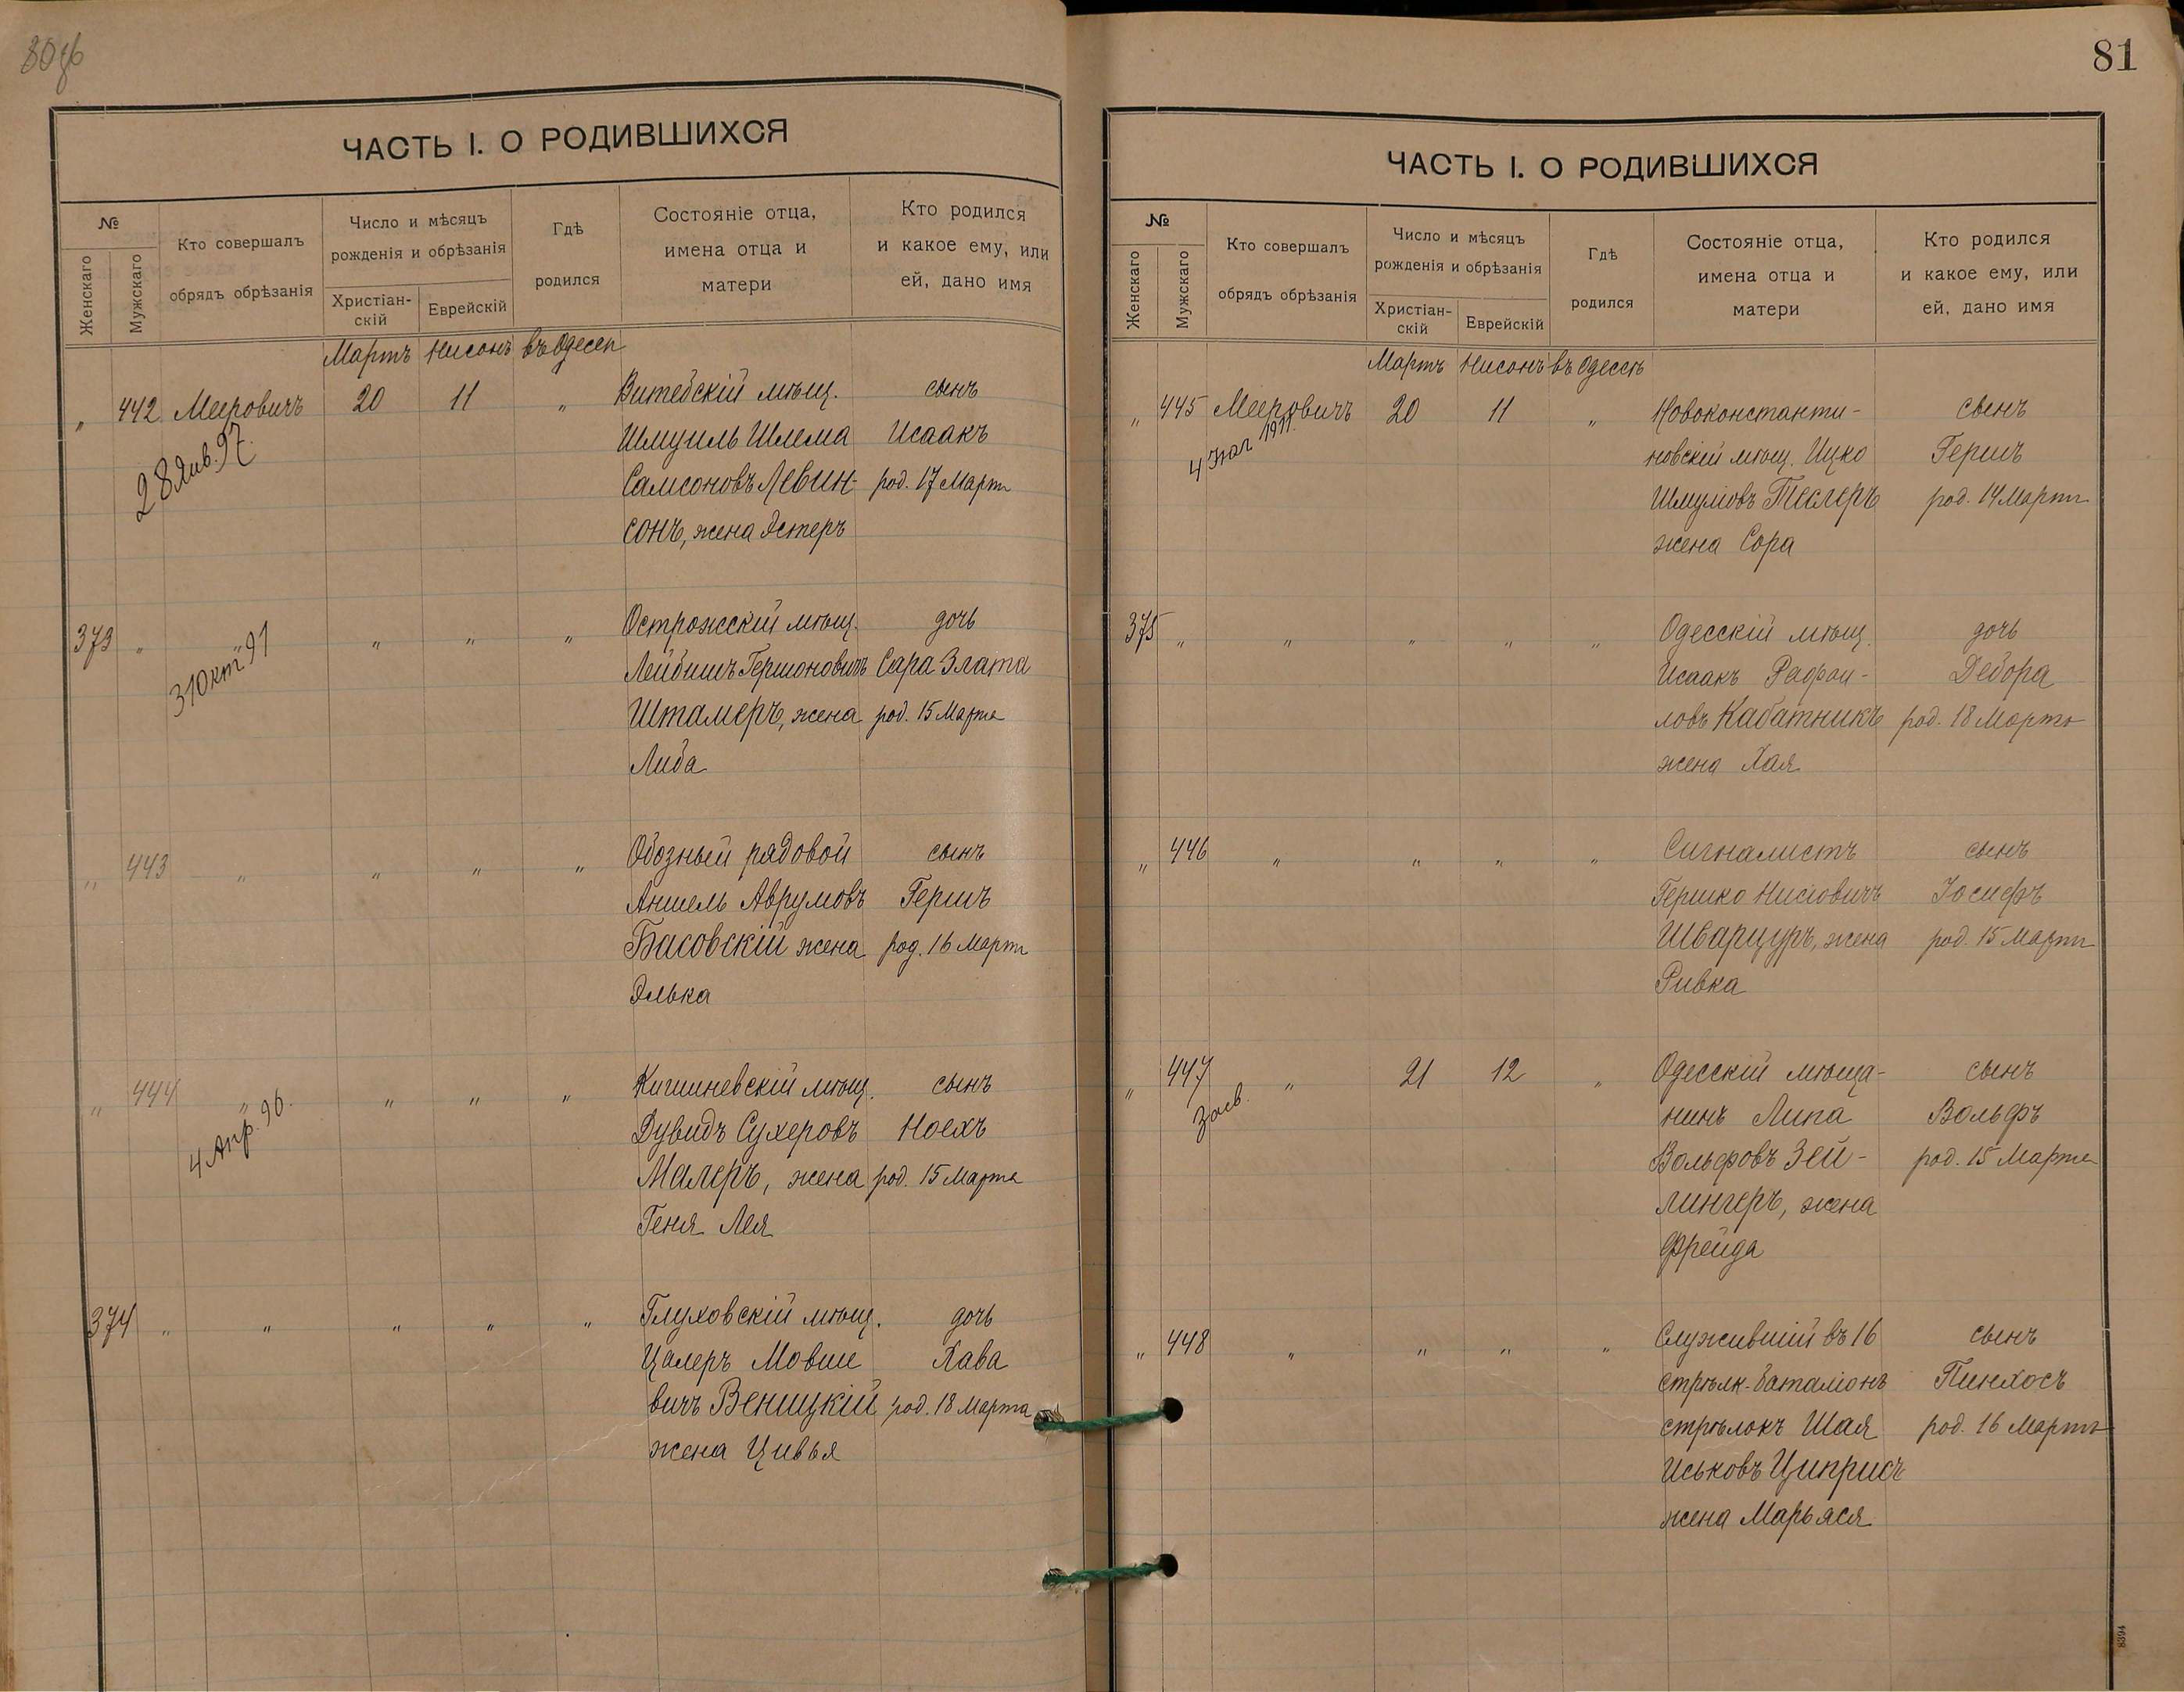 80об
ЧАСТЬ I. О РОДИВШИХСЯ
№
Женскаго
Мужскаго
Кто совершалъ
обрядъ обрѣзанія
Число и мѣсяцъ
рожденія и обрѣзанія
Христіан-
скій
Еврейскій
Гдѣ
родился
Состояніе отца,
имена отца и
матери
Кто родился
и какое ему, или
ей, дано имя
Мартъ Нисонъ въ Одессѣ
" 442 Мееровичъ 20 11 " Витебскій мѣщ. сынъ
28 Янв. 97.
Шмуиль Шлема Исаакъ
Самсоновъ Левин- род. 17 Марта
сонъ, жена Эстеръ
373 " " " " " Острожскій мѣщ. дочь
31 Окт 91
Лейбишъ Гершоновичъ Сара Злата
Штамеръ, жена род. 15 Марта
Либа
" 443 " " " " Обозный рядовой сынъ
Аншель Аврумовъ Гершъ
Басовскій жена род. 16 Марта
Элька
" 444 " " " " Кишиневскій мѣщ. сынъ
4 Апр. 96.
Дувидъ Сухеровъ Ноехъ
Малеръ, жена род. 15 Марта
Геня Лея
374 " " " " " Глуховскій мѣщ. дочь
Цалеръ Мовше Хава
вичъ Веницкій род. 18 Марта
жена Цивья
81
ЧАСТЬ I. О РОДИВШИХСЯ
№
Женскаго
Мужскаго
Кто совершалъ
обрядъ обрѣзанія
Число и мѣсяцъ
рожденія и обрѣзанія
Христіан-
скій
Еврейскій
Гдѣ
родился
Состояніе отца,
имена отца и
матери
Кто родился
и какое ему, или
ей, дано имя
Мартъ Нисонъ въ Одессѣ
" 445 Мееровичъ 20 11 " Новоконстанти- сынъ
4 1911.
новскій мѣщ. Ицко Гершъ
Шмулівъ Теслеръ род. 14 Марта
жена Сора
375 " " " " " Одесскій мѣщ. дочь
Исаакъ Рафаи- Дебора
ловъ Кабатникъ род. 18 Марта
жена Хая
" 446 " " " " Сигналистъ сынъ
Гершко Нисіовичъ Іосифъ
Шварцуръ, жена род. 15 Марта
Ривка
" 447 " 21 12 " Одесскій мѣща- сынъ
Засв.
нинъ Липа Вольфъ
Вольфовъ Зей- род. 15 Марта
лингеръ, жена
Фрейда
" 448 " " " " Служившій въ 16 сынъ
стрѣлк. баталіонѣ Пинхосъ
стрѣлокъ Шая род. 16 Марта
Иськовъ Циприсъ
жена Марьяся
8394